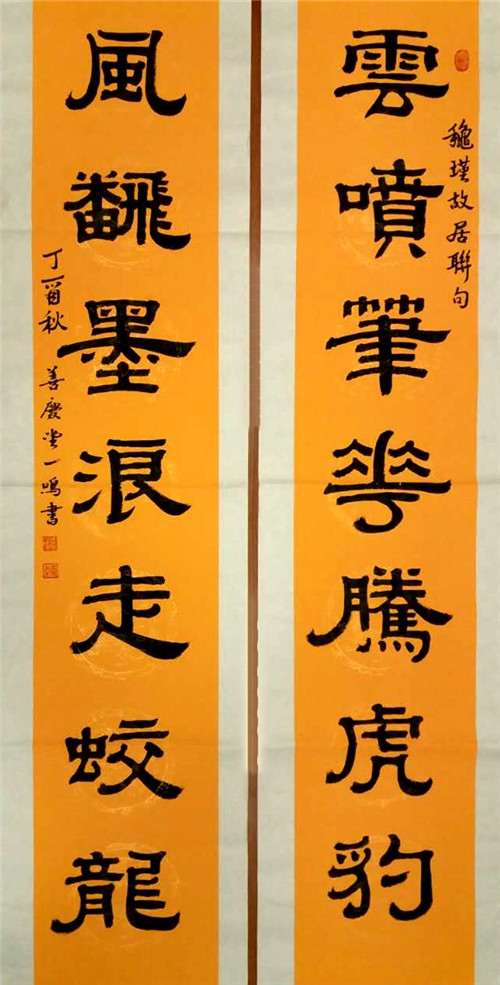 龝瑾故居聯句
雲噴筆華騰虎豹
風飜墨浪走蛟龍
丁酉秋 善慶堂一鳴書